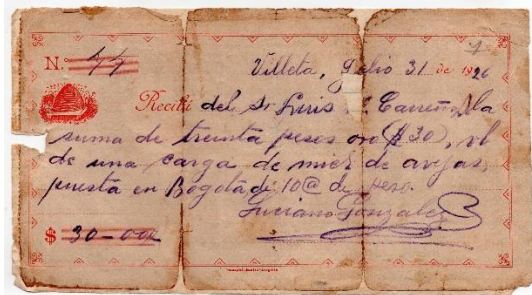 N. 44
Villeta, Julio 31 de 1926
Recibí del Sr Luis E. Carreño, la
suma de treinta pesos oro ($ 30), vl
de una carga de miel de avejas,
puesta en Bogotá de 10@ de peso.
Luciano Gonzalez
$ 30-00